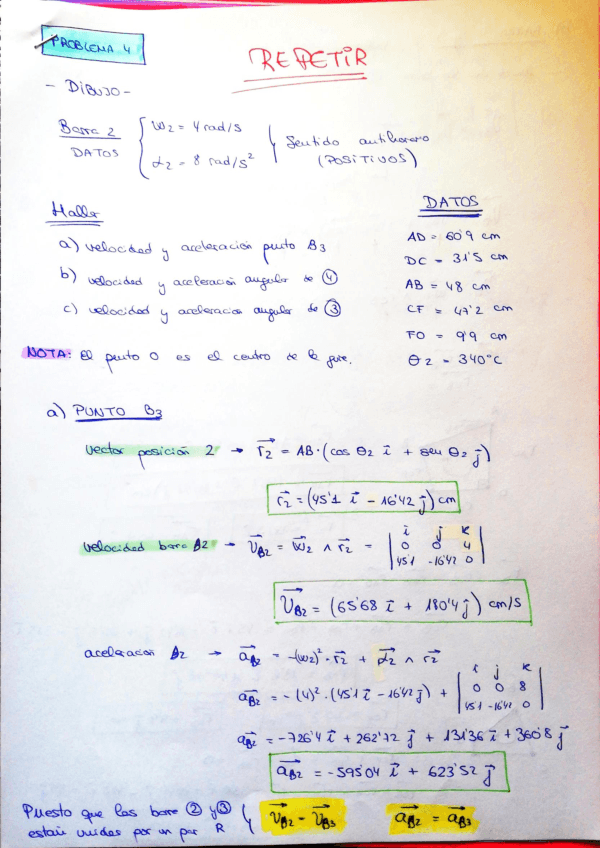 PROBLEMA 4
REPETIR
- DIBUJO -
Barra 2 DATOS { ω2 = 4 rad/s
α2 = 8 rad/s² } Sentido antihorario (POSITIVOS)
Hallar
a) velocidad y aceleración punto B3
b) velocidad y aceleración angular de ④
c) velocidad y aceleracion angular de ③
NOTA: El punto O es el centro de la guía.
DATOS
AD = 60'9 cm
DC = 31'5 cm
AB = 48 cm
CF = 47'2 cm
FO = 9'9 cm
θ2 = 340°C
a) PUNTO B3
vector posición 2 → r2 = AB·(cos θ2 i + sen θ2 j)
r2 = (45'1 i - 16'42 j) cm
velocidad barra B2 → VB2 = ω2 ∧ r2 = | i j k
0 0 4
45'1 -16'42 0 |
VB2 = (65'68 i + 180'4 j) cm/s
aceleracion B2 → aB2 = -(ω2)²·r2 + α2 ∧ r2
aB2 = -(4)²·(45'1 i - 16'42 j) + | i j k
0 0 8
45'1 -16'42 0 |
aB2 = -726'4 i + 262'72 j + 131'36 i + 360'8 j
aB2 = -595'04 i + 623'52 j
Puesto que las barra ② y ③
están unidas por un par R { VB2 = VB3 aB2 = aB3